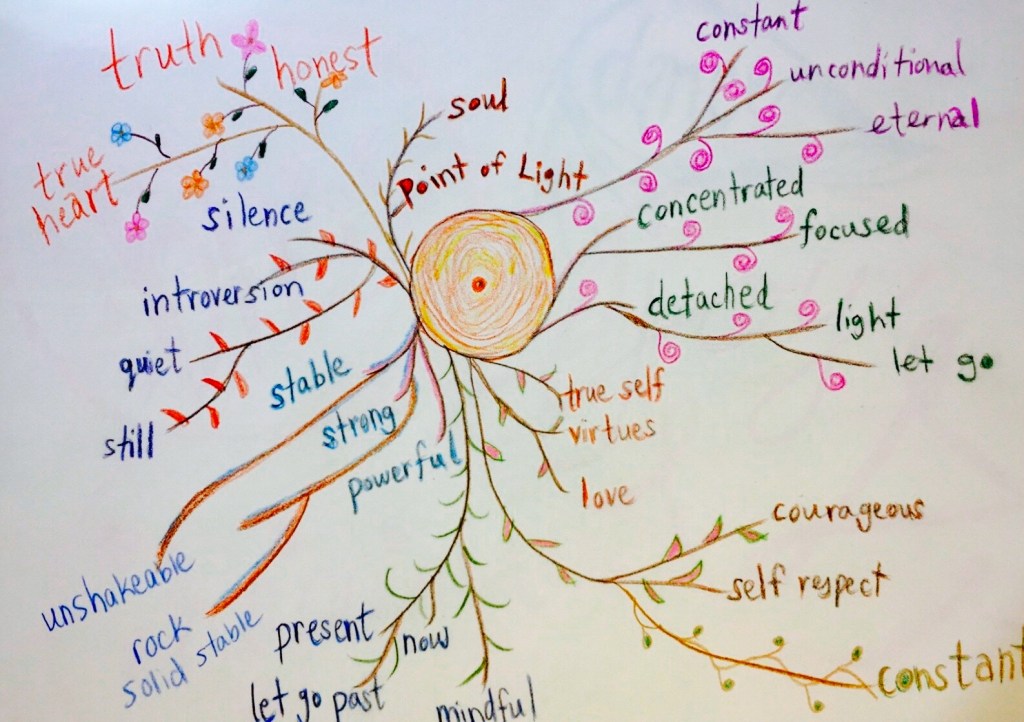 truth
honest
true
heart
soul
Point of Light
constant
unconditional
eternal
concentrated
focused
detached
light
let go
silence
introversion
quiet
still
stable
strong
powerful
unshakeable
rock
solid stable
true self
virtues
love
courageous
self respect
constant
present
now
let go past
mindful